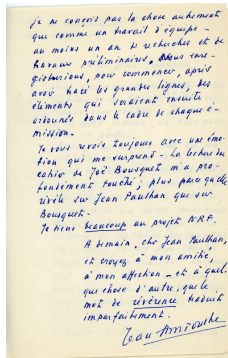 je ne conçois pas la chose autrement
que comme un travail d'équipe —
au moins un an de recherches et de
travaux préliminaires. Nous enre-
gistrerions, pour commencer, après
avoir tracé les grandes lignes, des
éléments qui seraient ensuite
ordonnés dans le cadre de chaque é-
mission.
Je vous revois toujours avec une émo-
tion qui me surprend. La lecture du
cahier de Joë Bousquet m'a pro-
fondément touché ; plus par ce qu'elle
révèle sur Jean Paulhan que sur
Bousquet.
Je tiens beaucoup au projet N.R.F.
A demain, cher Jean Paulhan,
et croyez à mon amitié,
à mon affection — et à quel-
que chose d'autre, que le
mot de révérence traduit
imparfaitement.
Jean Amrouche